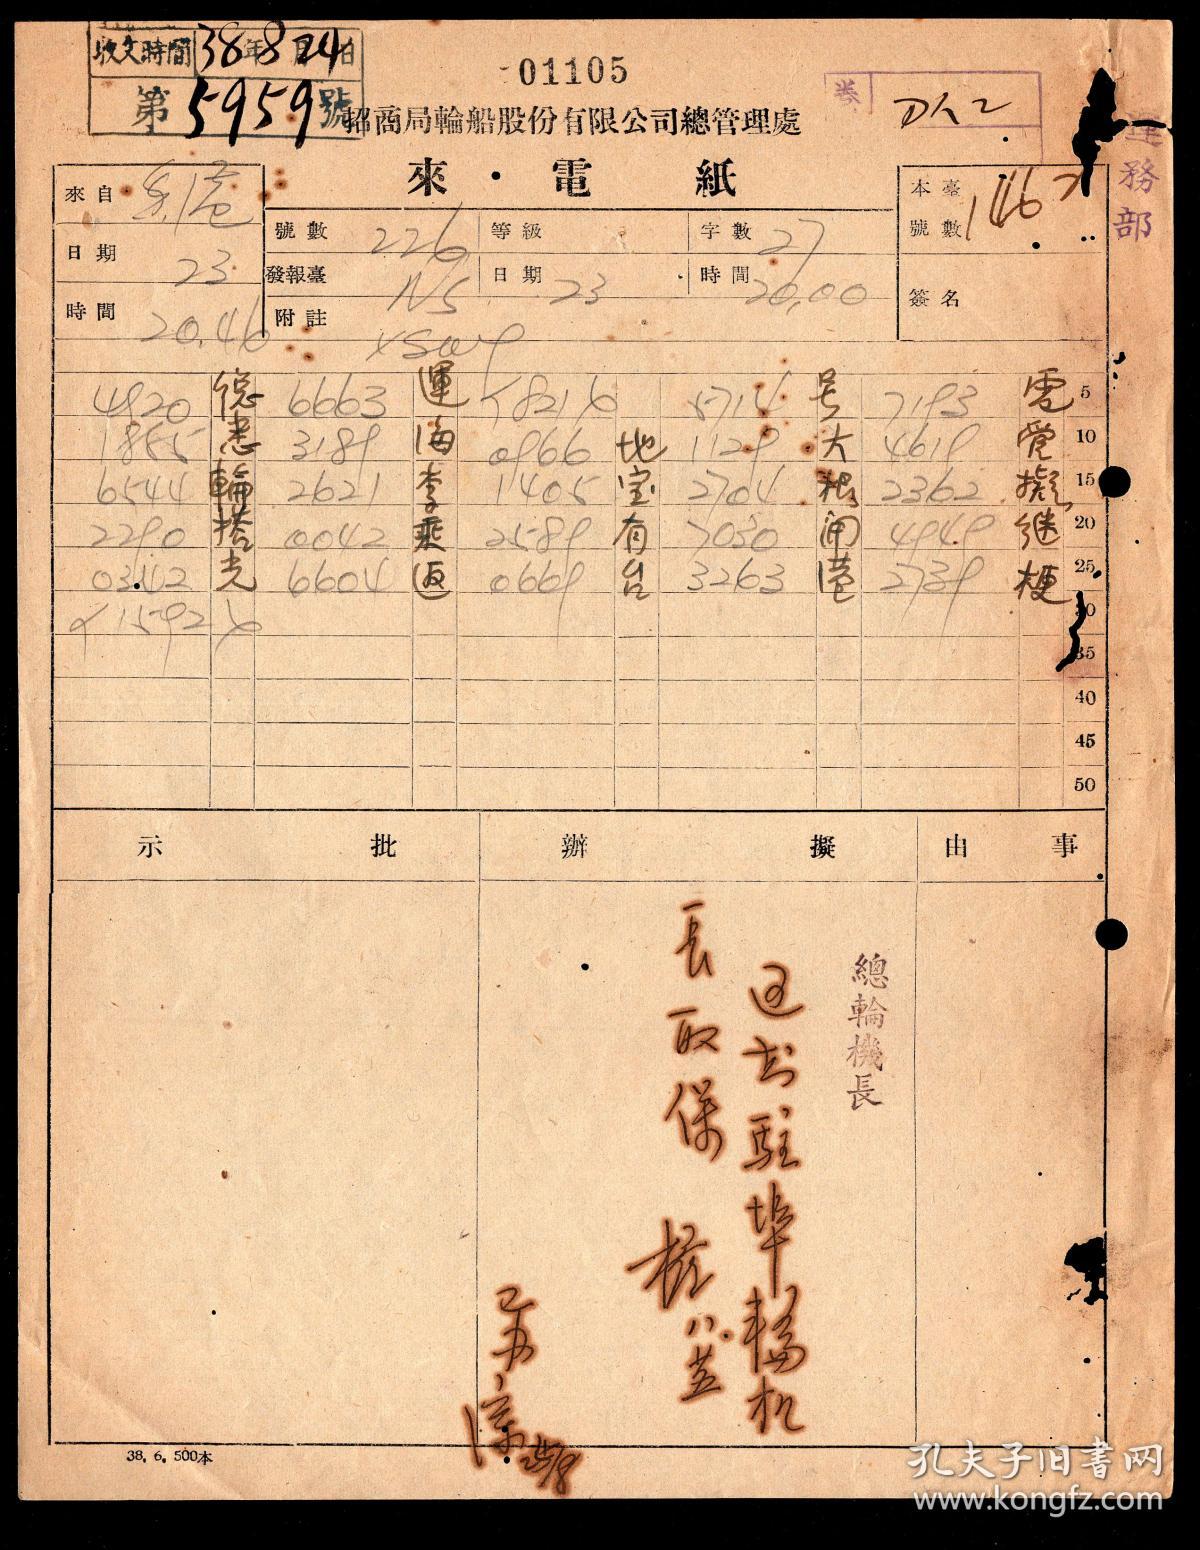 收文時間 38年8月24日
第5959號
01105
卷 DK2
招商局輪船股份有限公司總管理處
來·電紙
運務部
來自 香港
日期 23
時間 20.46
號數 226 等級 字數 27
發報臺 日期 23 時間 20.00
附註
本臺號數
簽名
4920 總 6663 運 <8216 5714 号 7193 電 5
1885 悉 3189 海 0966 地 1129 大 4619 10
6544 輪 2621 李 1405 宝 2704 根 2362 擬 15
2290 搭 0042 乘 2589 有 7030 開 4949 继 20
0342 光 6604 返 0669 台 3263 港 2739 梗 25
<1592 30
35
40
45
50
示 批 辦 擬 由 事
總輪機長
駐埠輪机
長 取保
38. 6. 500本
孔夫子旧书网
www.kongfz.com